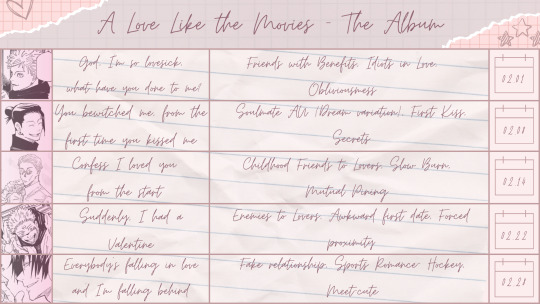 A Love Like the Movies - The Album
God, I'm so lovesick,
what have you done to me?
Friends with Benefits, Idiots in Love,
Obliviousness
02.01
You bewitched me, from the
first time you kissed me
Soulmate AU (Dream variation), First Kiss,
Secrets
02.08
Confess I loved you
from the start
Childhood Friends to Lovers, Slow Burn,
Mutual Pining
02.14
Suddenly, I had a
Valentine
Enemies to Lovers, Awkward first date, Forced
proximity
02.22
Everybody's falling in love
and I'm falling behind
Fake relationship, Sports Romance- Hockey,
Meet-cute
02.28